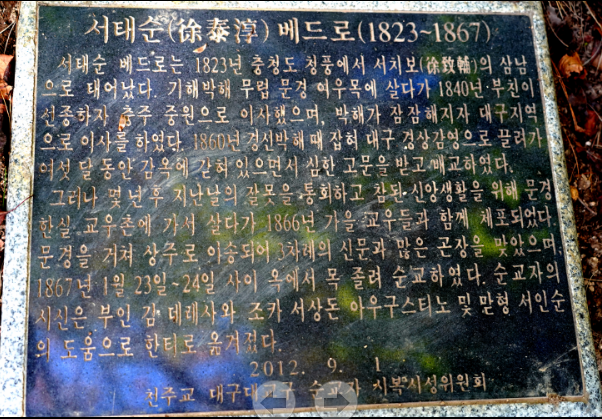 서태순(徐泰淳) 베드로(1823~1867)
서태순 베드로는 1823년 충청도 청풍에서 서치보(徐致輔)의 삼남
으로 태어났다. 기해박해 무렵 문경 여우목에 살다가 1840년 부친이
선종하자 충주 중원으로 이사했으며, 박해가 잠잠해지자 대구지역
으로 이사를 하였다. 1860년 경신박해 때 잡혀 대구 경상감영으로 끌려가
여섯 달 동안 감옥에 갇혀 있으면서 심한 고문을 받고 배교하였다.
그러나 몇 년 후 지난날의 잘못을 통회하고 참된 신앙생활을 위해 문경
한실 교우촌에 가서 살다가 1866년 가을 교우들과 함께 체포되었다.
문경을 거쳐 상주로 이송되어 3차례의 신문과 많은 곤장을 맞았으며,
1867년 1월 23일~24일 사이 옥에서 목 졸려 순교하였다. 순교자의
시신은 부인 김 데레사와 조카 서상돈 아우구스티노 및 맏형 서인순
의 도움으로 한티로 옮겨졌다.
2012. 9. 1
천주교 대구대 순 자 시복시성위원회